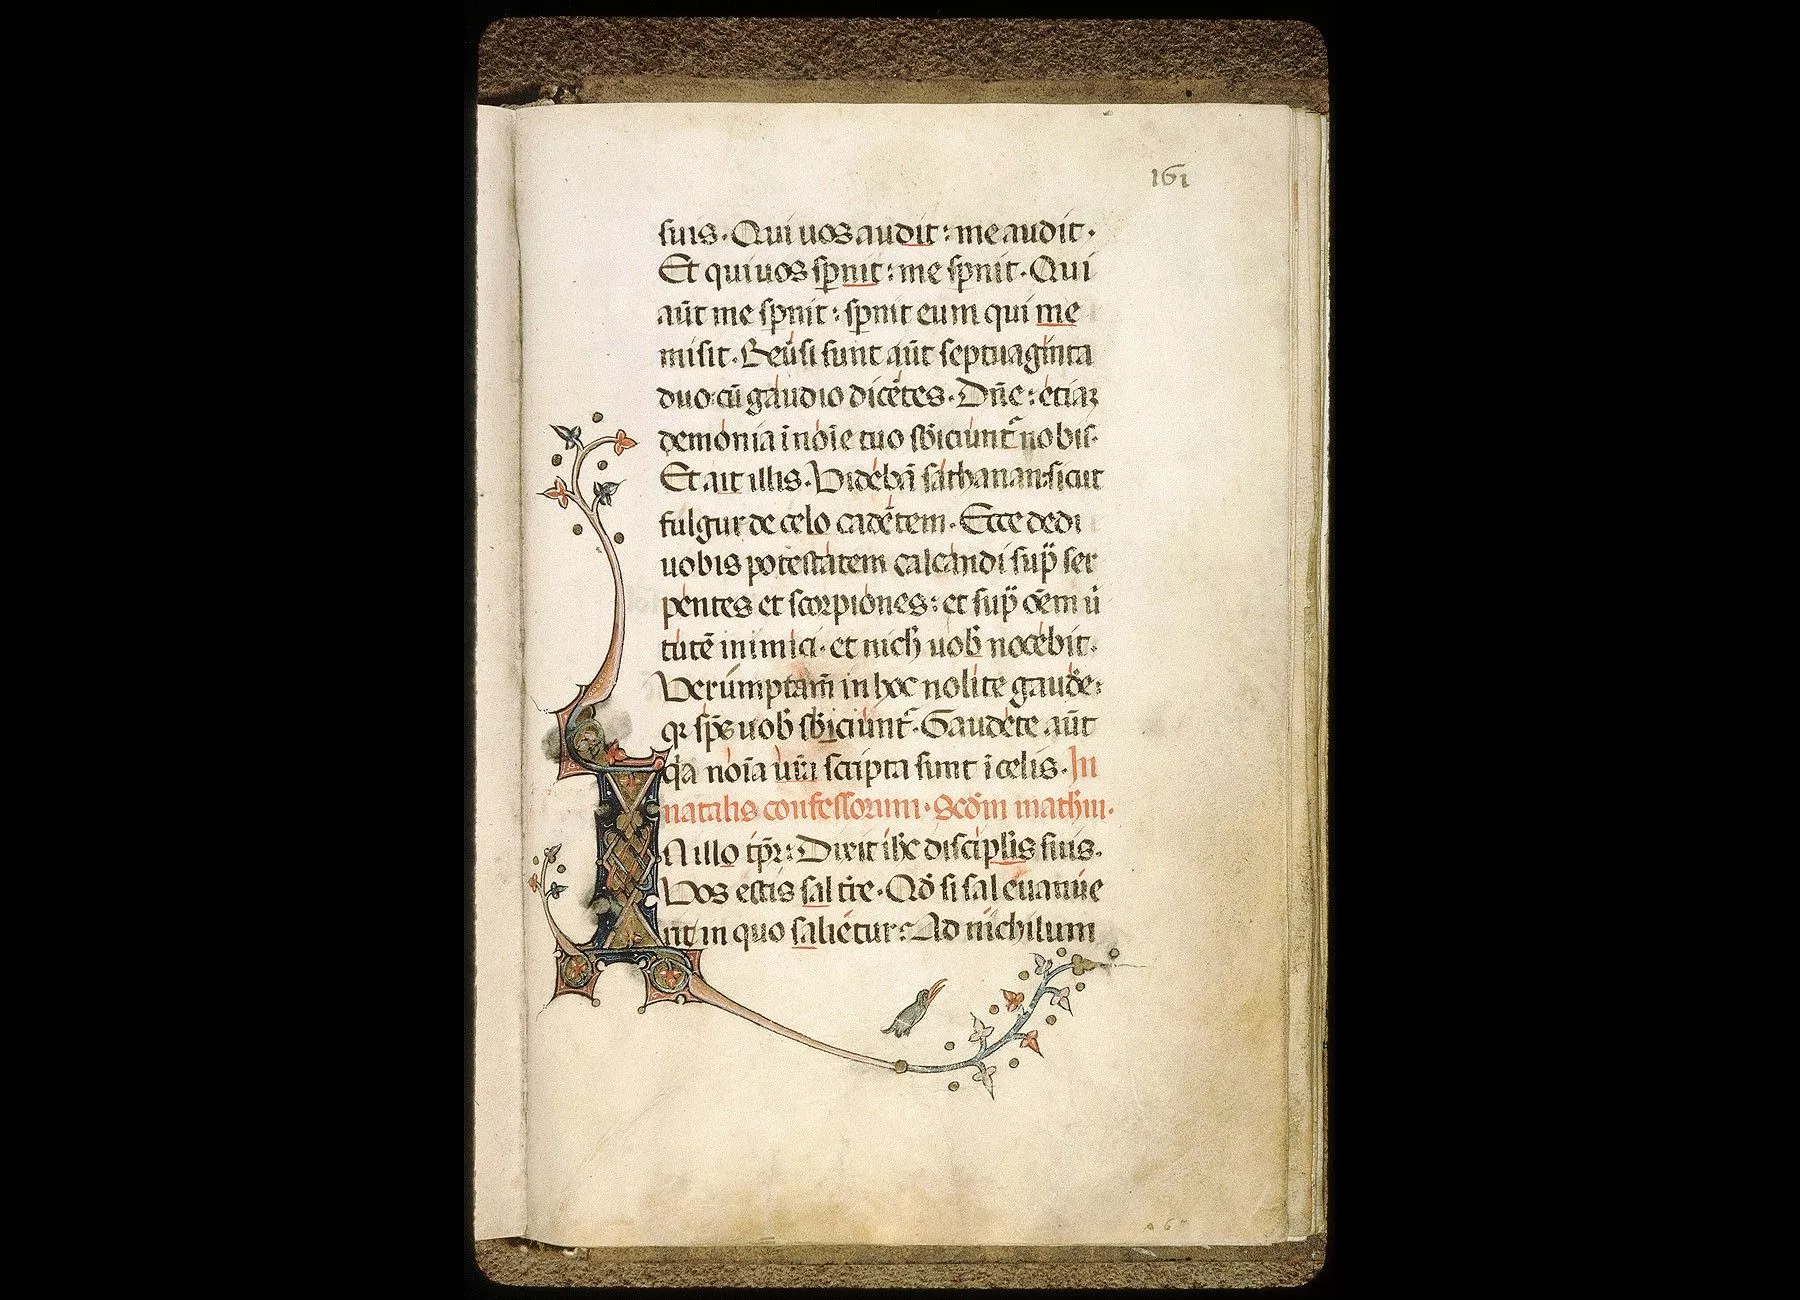 161
suis. Qui uos audit: me audit.
Et qui uos sp̱nit: me sp̱nit. Qui
aūt me sp̱nit: sp̱nit eum qui me
misit. Reūsi sunt aūt septuaginta
duo cū gaudio dicētes. Dn̄e: etiaꝫ
demonia i noīe tuo sb̄iciunt᷑ nobis.
Et ait illis. Videbā sathanan sicut
fulgur de celo cadētem. Ecce dedi
uobis potestatem calcandi sup̄ ser
pentes et scorpiones: et sup̄ oēm ū
tutē inimici. et nich̄ uob̄ nocebit.
Verumptam̄ in hoc nolite gaude᷑:
qꝛ sp̄s uob̄ sb̄iciunt᷑. Gaudete aūt
qa noīa ur̄a scripta sunt ī celis. In
natalis confessorum. Scd̄m math̄m.
N illo tp̄r: Dixit ih̄c discipl̄is suis.
Vos estis sal tr̄e. Qd̄ si sal euanue
rit in quo salietur: Ad nichilum